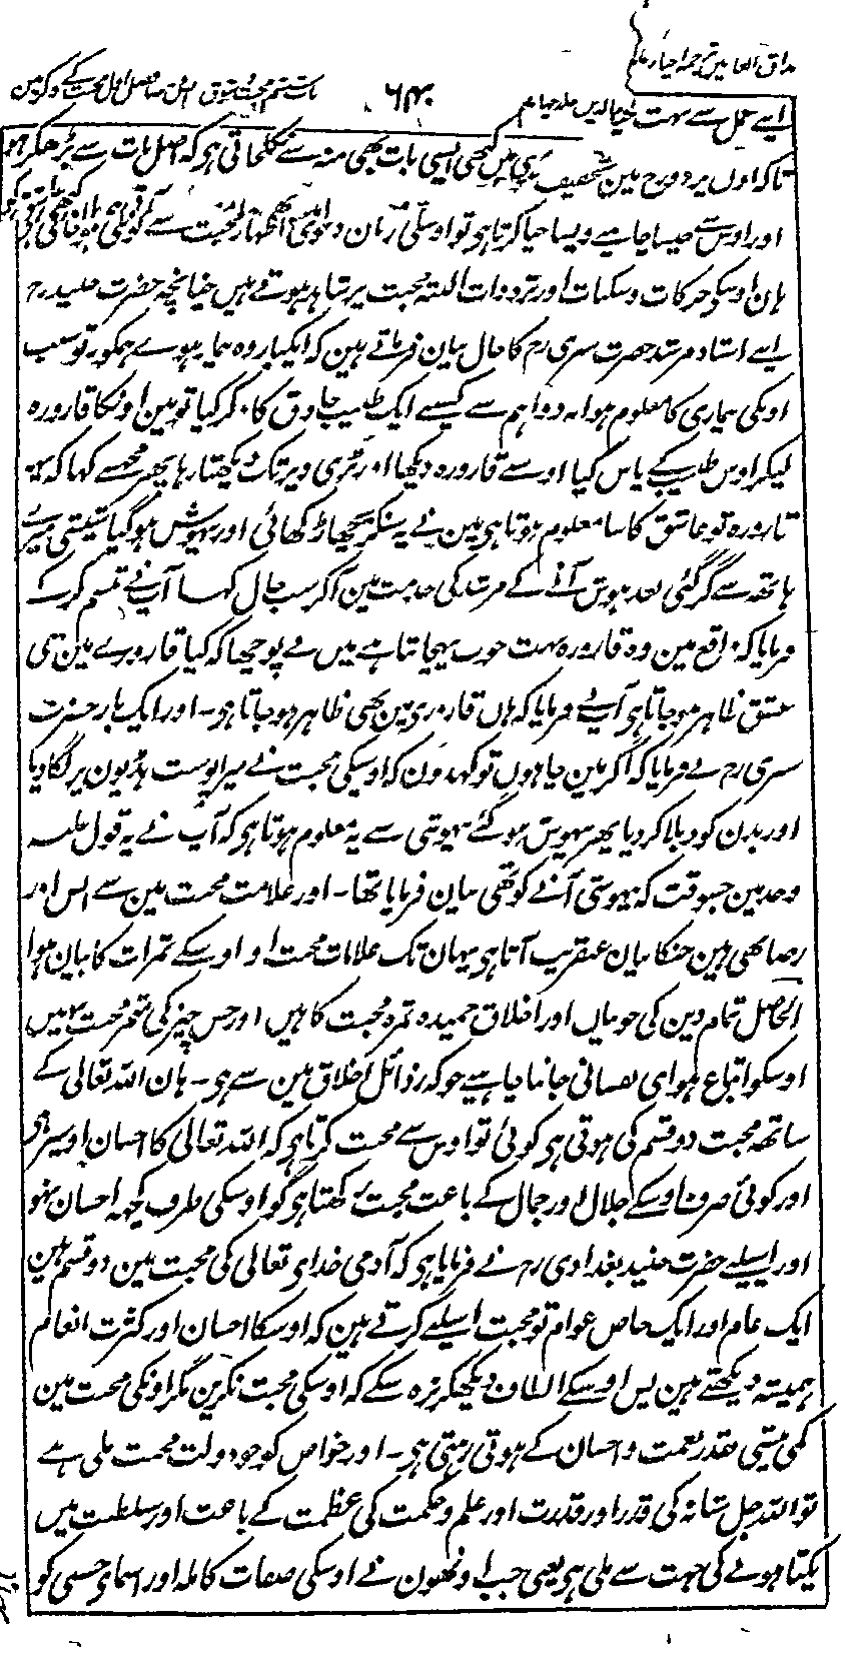 مذاق العارفین ترجمہ احیاء علوم
۶۴۰ باب ششم محبت و شوق فصل اول محبت کے ذکر مین
ایسے عمل سے بہت
تاکہ اوں پر دوزخ مین تخفیف کبھی ایسی بات بھی منہ سے نکلجاتی ہو کہ اصل بات سے بڑھکر ہو
اور اوس سے جیسا چاہیے ویسا حیا کرتا ہو تو اوسکی زبان دعوی اظہار محبت سے
ہان اوسکی حرکات و سکنات اور ترددات البتہ محبت پر شاہد ہوتے ہیں چنانچہ حضرت جنید رح
اپنے استاد مرشد حضرت سری رح کا حال بیان فرماتے ہین کہ ایکبار وہ بیمار ہوے ہمکو نہ تو سبب
اونکی بیماری کا معلوم ہوا نہ دوا ہم سے کسیے ایک طبیب حاذق کا ذکر کیا تو مین اونکا قارورہ
لیکر اوس طبیب کے پاس گیا اوسنے قارورہ دیکھا اور بڑی دیر تک دیکھتا رہا پھر مجھسے کہا کہ یہ
قارورہ تو عاشق کا سا معلوم ہوتا ہو مین نے یہ سنکر پچھاڑ کھائی اور بیہوش ہو گیا شیشی میرے
ہاتھ سے گر گئی بعد ہوش آنے کے مرشد کی خدمت مین آکر سب حال کہا آپ نے تبسم کر کے
فرمایا کہ واقع مین وہ قارورہ بہت خوب پہچانتا ہے میں نے پوچھا کہ کیا قارورے مین بھی
عشق ظاہر ہو جاتا ہو آپ نے فرمایا کہ ہاں قارورہ مین بھی ظاہر ہو جاتا ہو ۔ اور ایک بار حضرت
سری رح نے فرمایا کہ اگر مین چاہوں تو کہدون کہ اوسکی محبت نے میرا پوست ہڈیون پر لگا دیا
اور بدن کو دبلا کر دیا پھر بیہوش ہو گئے بیہوشی سے یہ معلوم ہوتا ہو کہ آپ نے یہ قول غلبہ
وجد مین جسوقت کہ بیہوشی آنے کو تھی بیان فرمایا تھا ۔ اور علامت محبت مین سے انس اور
رضا بھی ہین جنکا بیان عنقریب آتا ہو یہان تک علامات محبت اور اوسکے ثمرات کا بیان ہوا
الحاصل تمام دین کی خوبیاں اور اخلاق حمیدہ ثمرہ محبت کا ہیں اور جس چیز کی ثمرہ محبت نہیں
اوسکو اتباع ہوای نفسانی جاننا چاہیے جو کہ رذائل اخلاق مین سے ہو ۔ ہان اللہ تعالی کے
ساتھ محبت دو قسم کی ہوتی ہو کوئی تو اوس سے محبت کرتا ہو کہ اللہ تعالی کا احسان اوسپر ہو
اور کوئی صرف اوسکے جلال اور جمال کے باعث محبت رکھتا ہو گو اوسکی طرف کچھ احسان نہو
اور اسیلیے حضرت جنید بغدادی رح نے فرمایا ہو کہ آدمی خدای تعالی کی محبت مین دو قسم ہین
ایک عام اور ایک خاص عوام تو محبت اسلیے کرتے ہین کہ اوسکا احسان اور کثرت انعام
ہمیشہ دیکھتے ہین پس اوسکے الطاف دیکھکر نرہ سکے کہ اوسکی محبت نکرین مگر اونکی محبت مین
کمی بیشی بقدر نعمت و احسان کے ہوتی رہتی ہو ۔ اور خواص کو جو دولت محبت ملی ہے
تو اللہ جل شانہ کی قدر اور قدرت اور علم و حکمت کی عظمت کے باعث اور سلطنت میں
یکتا ہونے کی جہت سے ملی ہو یعنی جب اونھون نے اوسکی صفات کاملہ اور اسمای حسنی کو